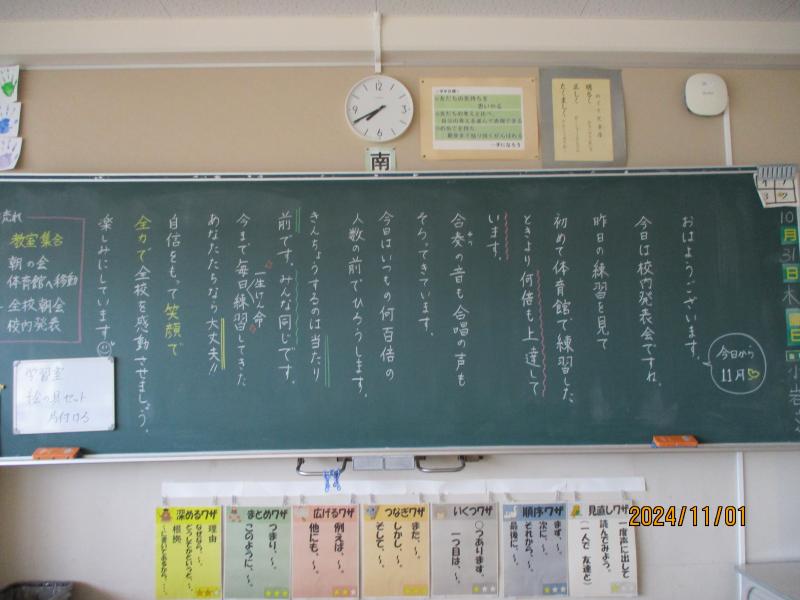 おはようございます。
今日は校内発表会ですね。
昨日の練習を見て
初めて体育館で練習した
ときより何倍も上達して
います。
合奏の音も合唱の声も
そろってきています。
今日はいつもの何百倍の
人数の前でひろうします。
きんちょうするのは当たり
前です。みんな同じです。
今まで毎日一生けん命練習してきた
あなたたちなら大丈夫!!
自信をもって笑顔で
全力で全校を感動させましょう。
楽しみにしています
今日から
11月
10月31日木
流れ
教室集合
朝の会
体育館へ移動
全校朝会
校内発表
学習室
絵の具セット
片付ける
南
明るく
正しく
たくましく
見直しワザ
一度声に出して
読んでみよう。
(一人で 友達と)
順序ワザ
まず、～。
次に、～。
それから、～。
最後に、～。
いくつワザ
○つあります。
一つ目は、～。
つなぎワザ
また、～。
しかし、～。
そして、～。
広げるワザ
例えば、～。
他にも、～。
まとめワザ
つまり、～。
このように、～。
深めるワザ
理由
なぜなら、～。
どうしてかというと、～。
根拠
2024/11/01